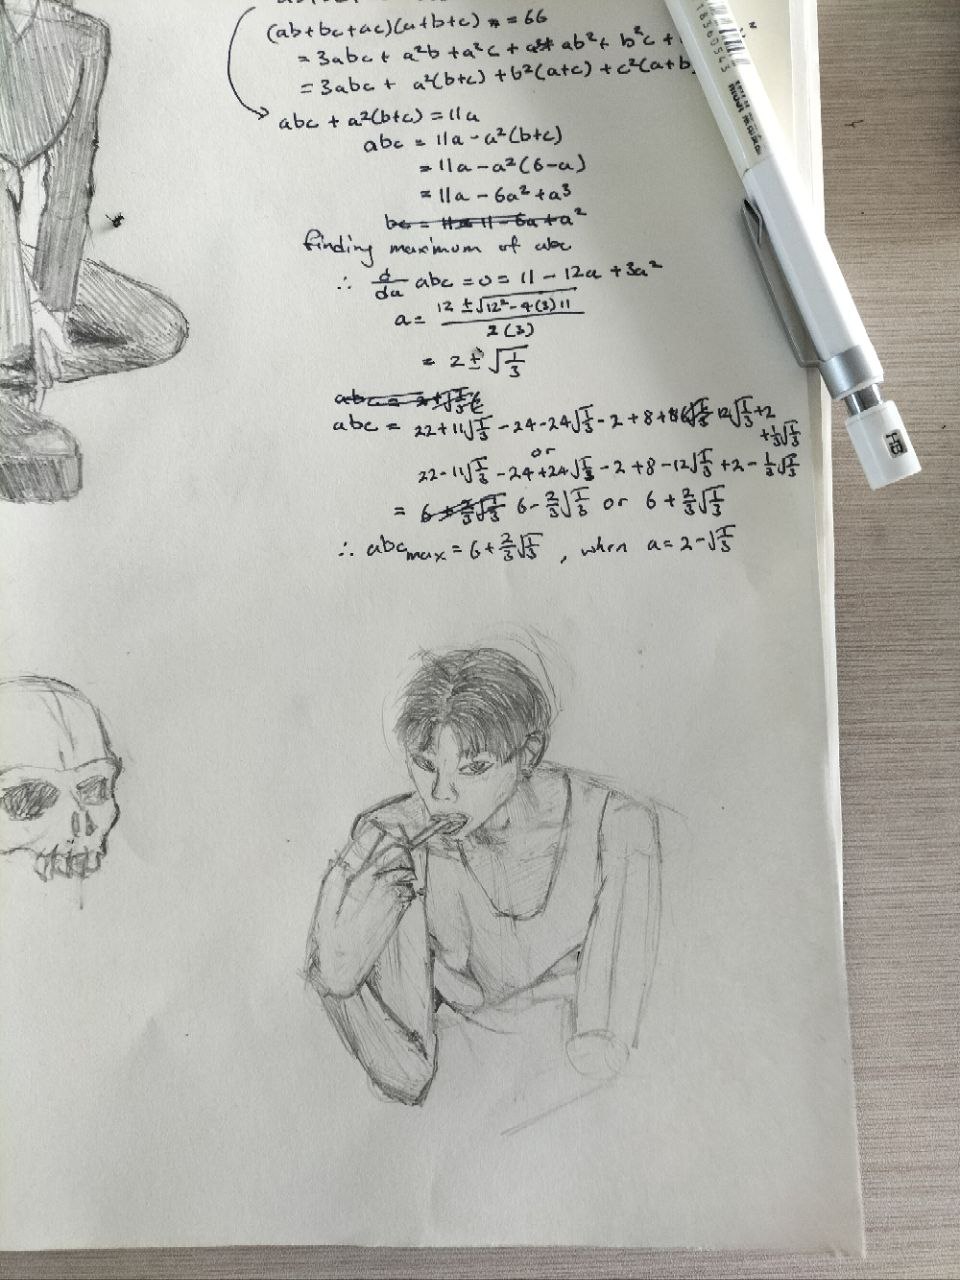 (ab+bc+ac)(a+b+c) = 66
= 3abc + a²b + a²c + ab² + b²c +
= 3abc + a²(b+c) + b²(a+c) + c²(a+b
abc + a²(b+c) = 11a
abc = 11a - a²(b+c)
= 11a - a²(6-a)
= 11a - 6a² + a³
bc = 11 - 6a + a²
finding maximum of abc
∴ d/da abc = 0 = 11 - 12a + 3a²
a = (12 ± √(12² - 4(3)11)) / 2(3)
= 2 ± √(1/3)
abc = 22 + 11√(1/3) - 24 - 24√(1/3) - 2 + 8 + 12√(1/3) + 2 + (1/3)√(1/3)
or
22 - 11√(1/3) - 24 + 24√(1/3) - 2 + 8 - 12√(1/3) + 2 - (1/3)√(1/3)
= 6 - (2/3)√(1/3) or 6 + (2/3)√(1/3)
∴ abc max = 6 + (2/3)√(1/3), when a = 2 - √(1/3)